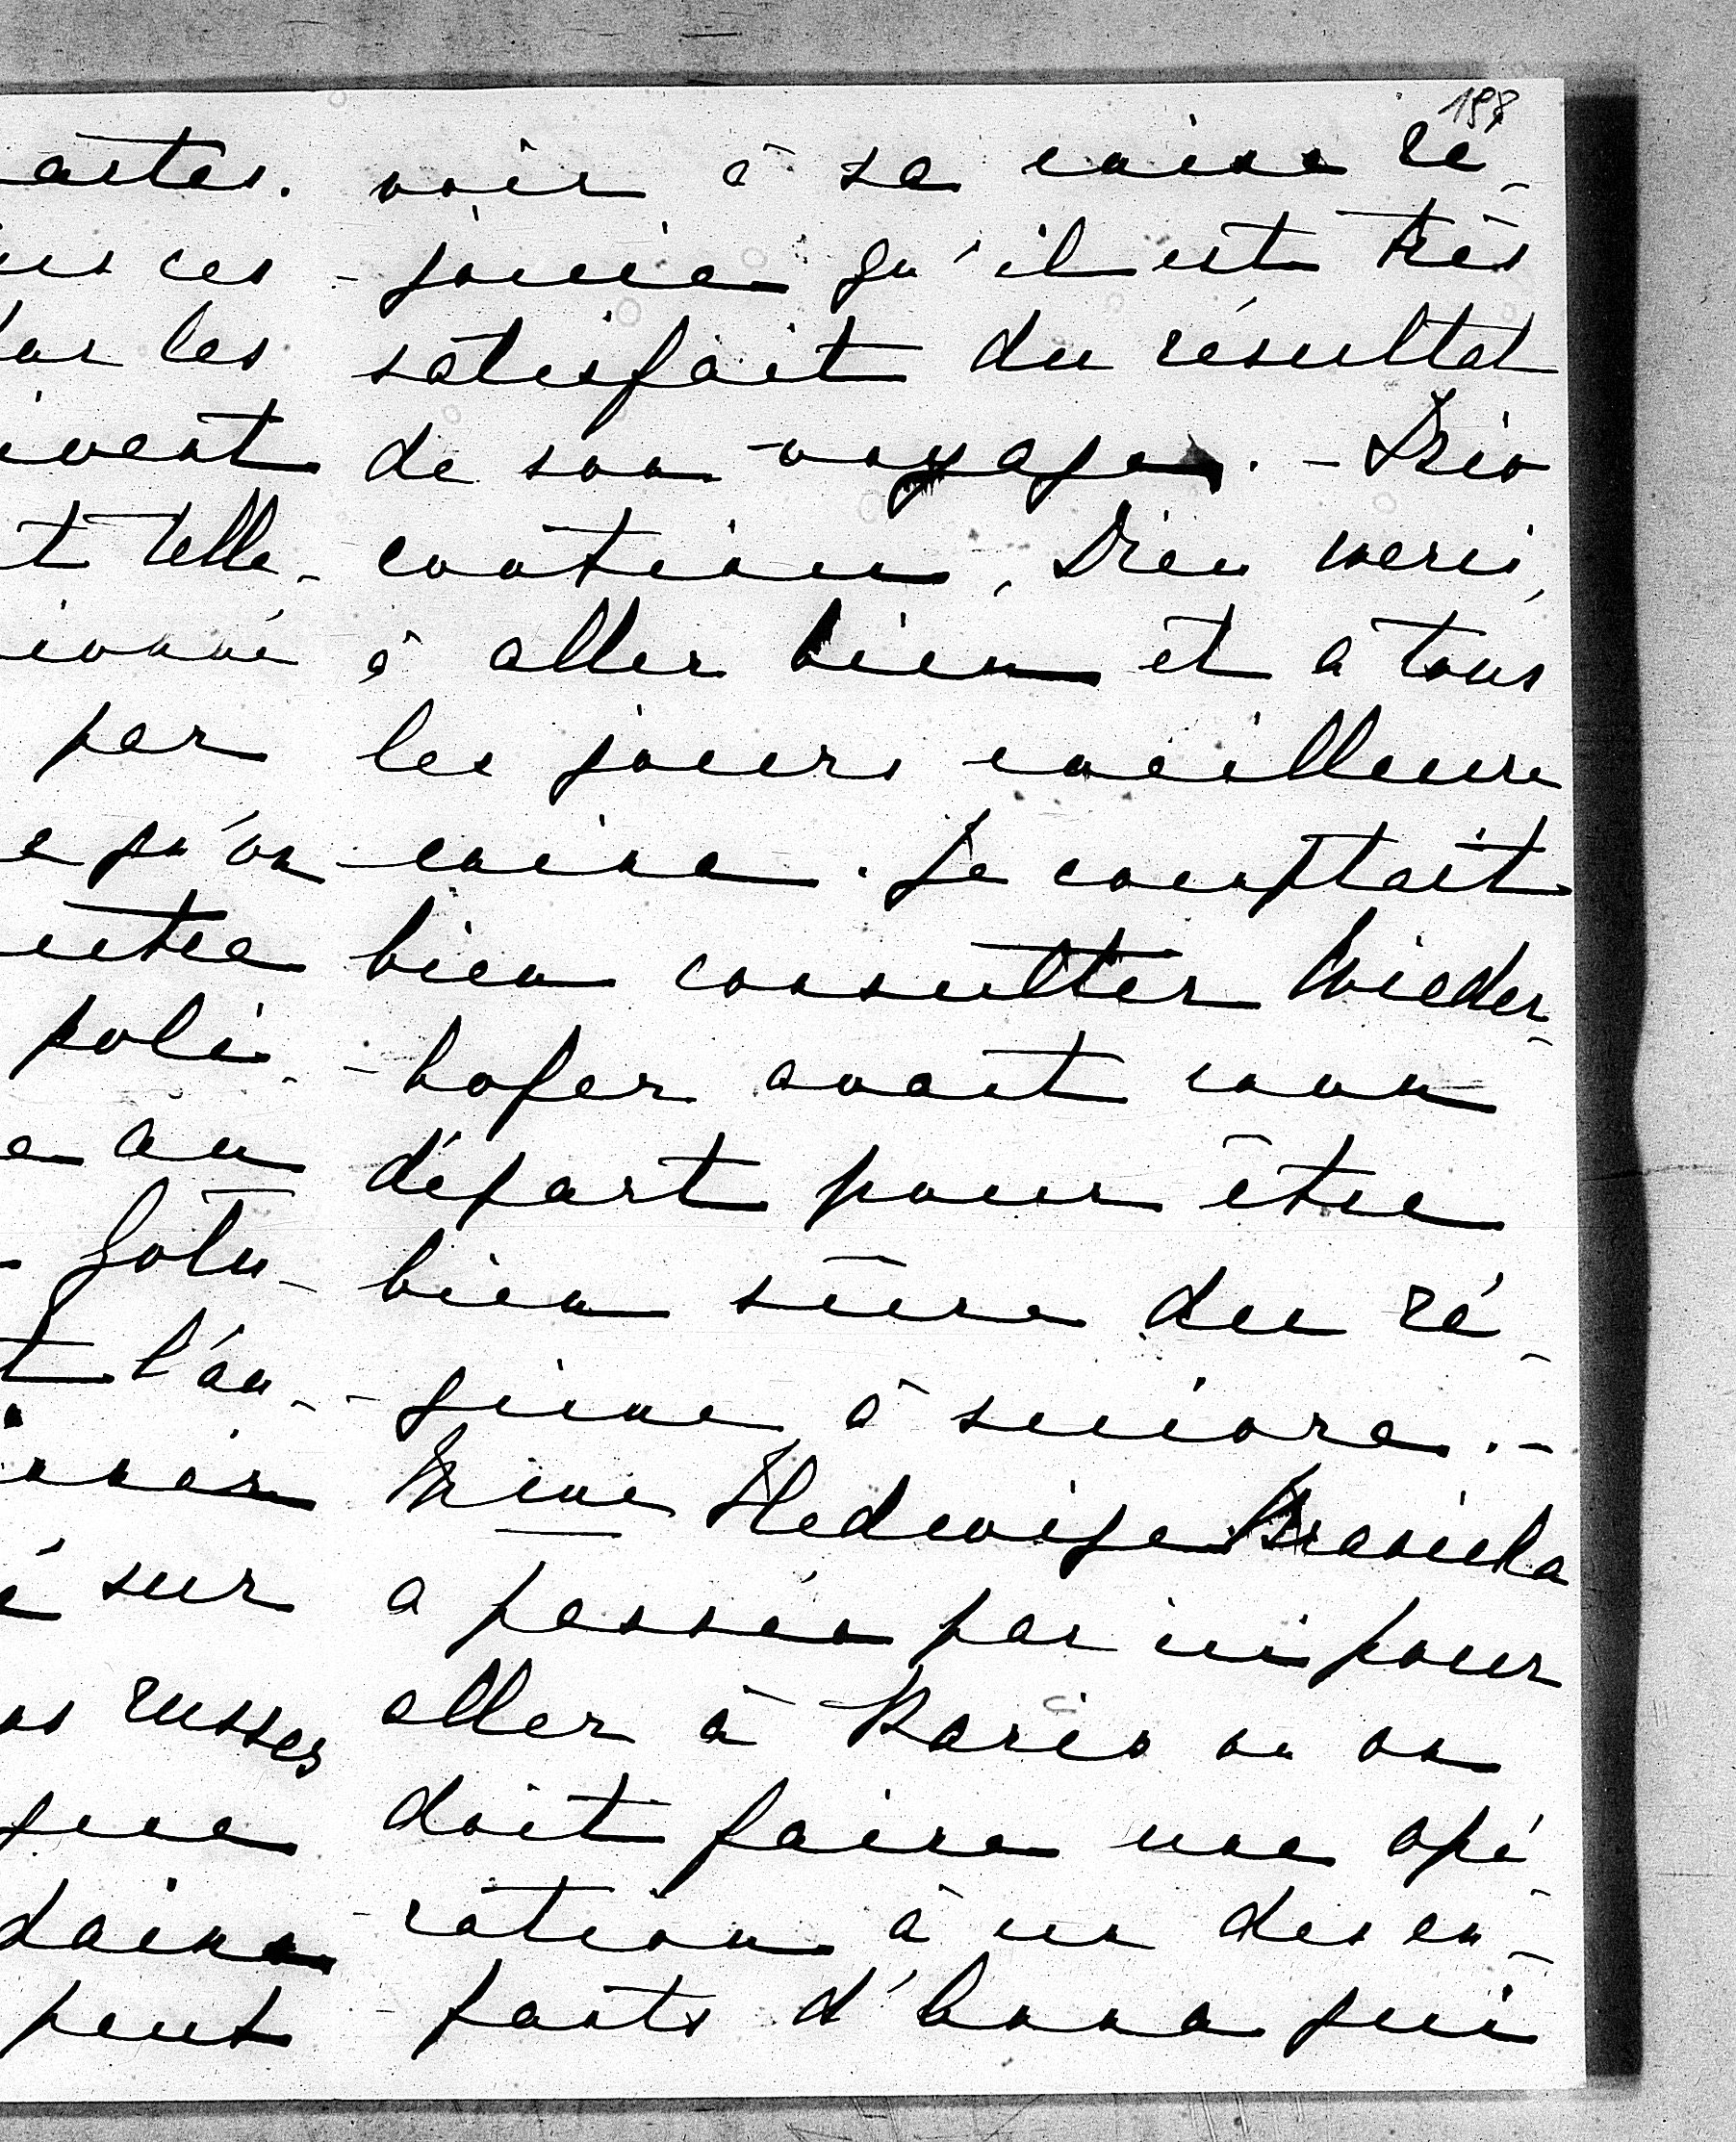 198
artes.
ces
les
ivent
t telle-
ionné
par
e qu'on
entre
poli-
e au
- Golu-
t l'an-
é sur
russes
que
daine
peut
voir à sa mine ré-
-jouie qu'il est très
satisfait du résultat
de son voyage. - Trio
continue, Dieu merci,
à aller bien et a tous
les jours meilleure
mine. Je comptait
bien consulter Wieder-
-hofer avant mon
départ pour être
bien sûre du ré-
-gime à suivre. -
Mme Hedwige Brasicka
a passée par ici pour
aller à Paris ou on
doit faire une opé
-ration à un des en-
-fants d'Anna qui